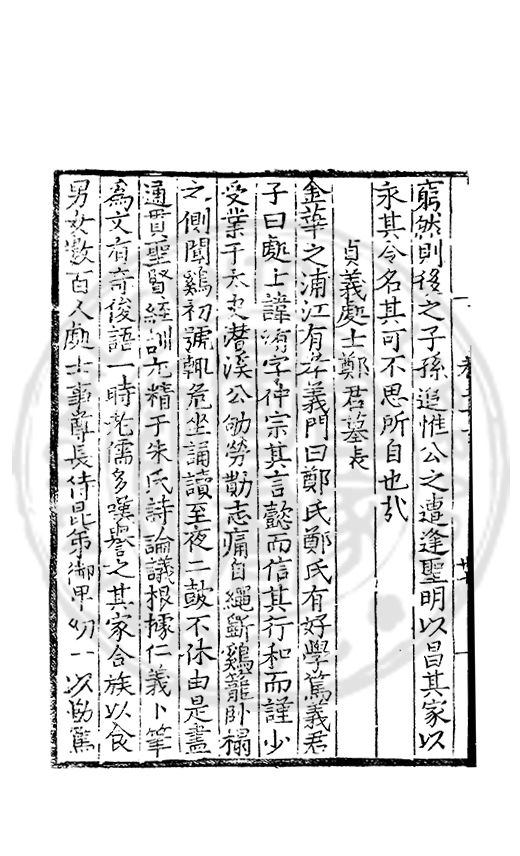 窮然則後之子孫追惟公之遭逢聖明以昌其家以
永其令名其可不思所自也哉
貞義處士鄭君墓表
金華之浦江有孝義門曰鄭氏鄭氏有好學篤義君
子曰處士諱洧字仲宗其言懿而信其行和而謹少
受業于太史潛溪公劬勞勩志痛自繩斷鷄籠卧榻
之側聞鷄初號輒危坐誦讀至夜二鼓不休由是盡
通貫聖賢經訓尤精于朱氏詩論議根據仁義卜筆
為文有奇俊語一時老儒多嘆譽之其家合族以食
男女數百人處士事尊長侍昆弟御卑幼一以勤篤